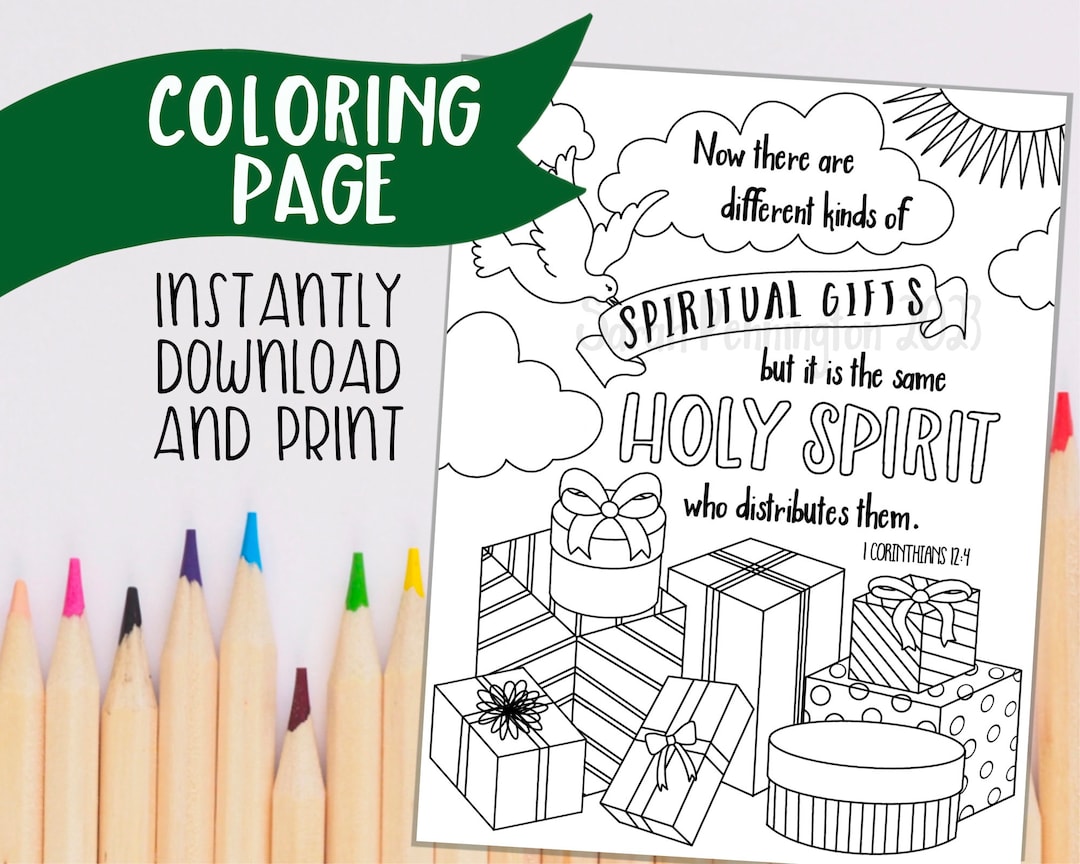 COLORING
PAGE
INSTANTLY
DOWNLOAD
AND PRINT
Now there are
different kinds of
SPIRITUAL GIFTS
but it is the same
HOLY SPIRIT
who distributes them.
1 CORINTHIANS 12:4
Sarah Pennington 2023